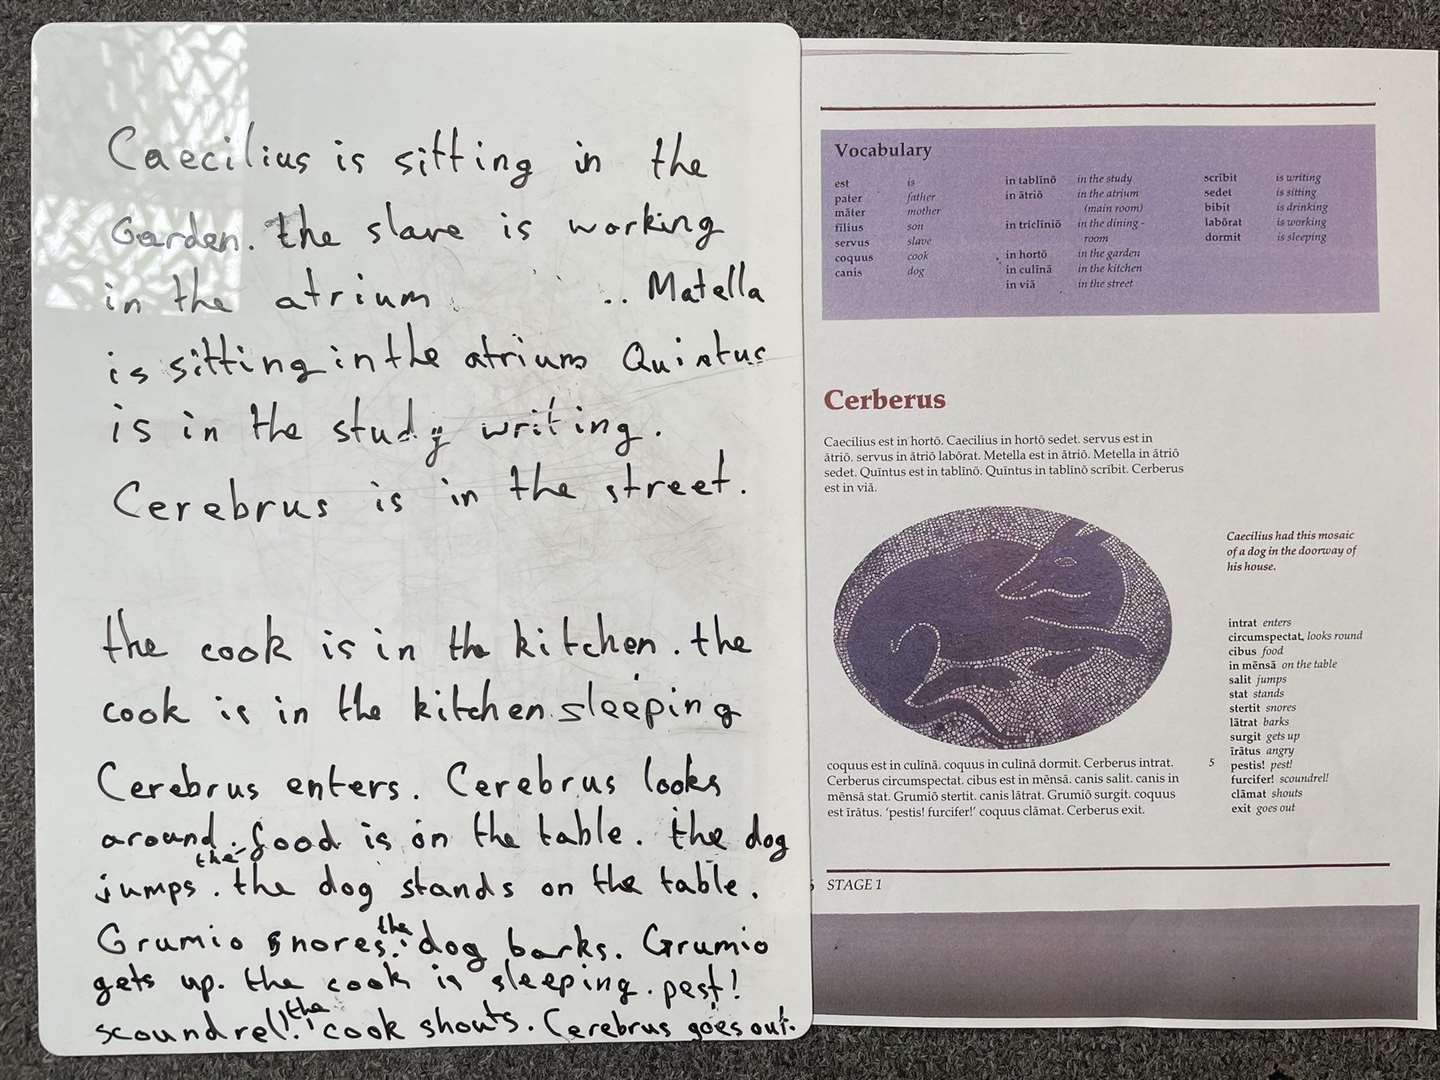 Caecilius is sitting in the
Garden. the slave is working
in the atrium . .. Matella
is sitting in the atrium Quintus
is in the study writing.
Cerebrus is in the street.
the cook is in the kitchen. the
cook is in the kitchen sleeping
Cerebrus enters. Cerebrus looks
around. food is on the table. the dog
jumps. the the dog stands on the table.
Grumio snores. the dog barks. Grumio
gets up. the cook is sleeping. pest!
scoundrel! the cook shouts. Cerebrus goes out.
Vocabulary
est is
pater father
māter mother
fīlius son
servus slave
coquus cook
canis dog
in tablīnō in the study
in ātriō in the atrium
(main room)
in triclīniō in the dining-
room
in hortō in the garden
in culīnā in the kitchen
in viā in the street
scrībit is writing
sedet is sitting
bibit is drinking
labōrat is working
dormit is sleeping
Cerberus
Caecilius est in hortō. Caecilius in hortō sedet. servus est in
ātriō. servus in ātriō labōrat. Metella est in ātriō. Metella in ātriō
sedet. Quīntus est in tablīnō. Quīntus in tablīnō scrībit. Cerberus
est in viā.
Caecilius had this mosaic
of a dog in the doorway of
his house.
intrat enters
circumspectat, looks round
cibus food
in mēnsā on the table
salit jumps
stat stands
stertit snores
lātrat barks
surgit gets up
īrātus angry
pestis! pest!
furcifer! scoundrel!
clāmat shouts
exit goes out
coquus est in culīnā. coquus in culīnā dormit. Cerberus intrat.
Cerberus circumspectat. cibus est in mēnsā. canis salit. canis in
mēnsā stat. Grumiō stertit. canis lātrat. Grumiō surgit. coquus
est īrātus. 'pestis! furcifer!' coquus clāmat. Cerberus exit.
5
STAGE 1